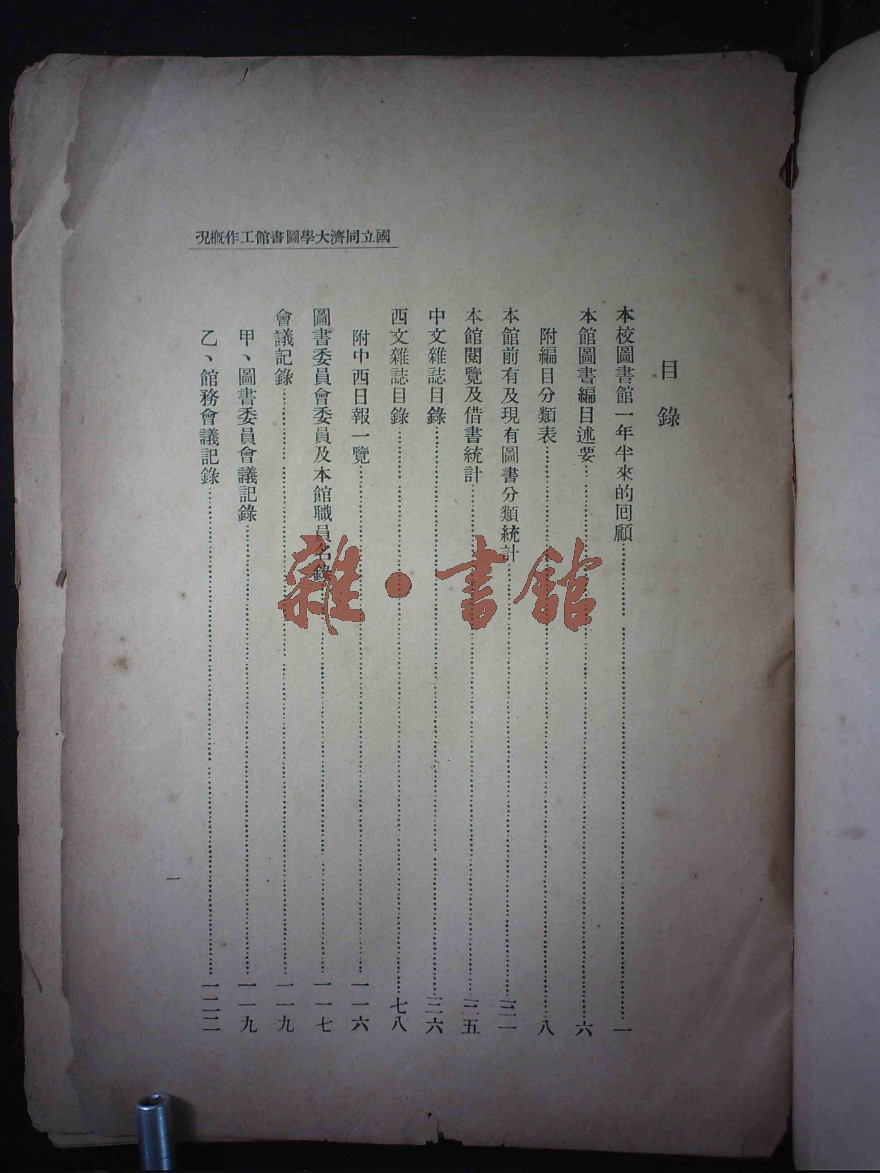 國立同濟大學圖書館工作概況
目錄
本校圖書館一年半來的回顧……一
本館圖書編目述要……六
附編目分類表……八
本館前有及現有圖書分類統計……三一
本館閱覽及借書統計……三五
中文雜誌目錄……三六
西文雜誌目錄……七八
附中西日報一覽……一一六
圖書委員會委員及本館職員名錄……一一七
會議記錄……一一九
甲、圖書委員會議記錄……一一九
乙、館務會議記錄……一二二
一
雜·書館